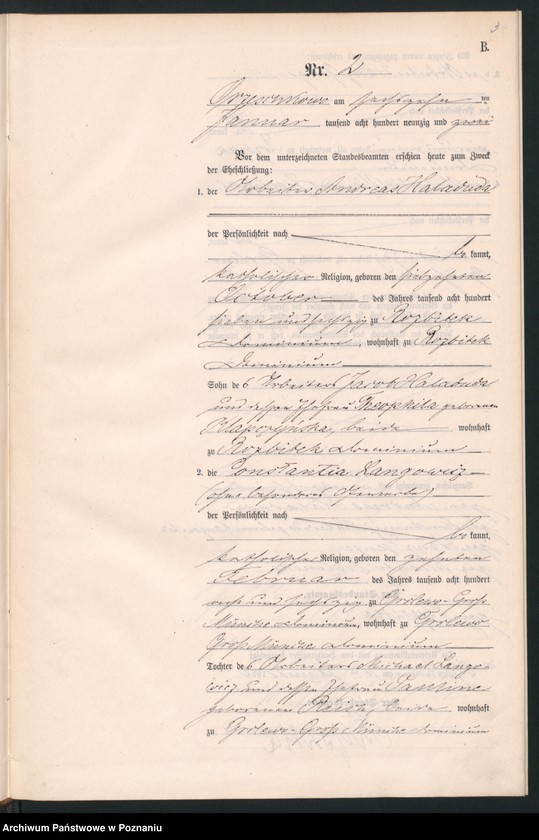 3
B.
Nr. 2
am sechszehn ten
Januar tausend acht hundert neunzig und zwei
Vor dem unterzeichneten Standesbeamten erschien heute zum Zweck
der Eheschließung:
1. der Arbeiter Andreas Haladuda
der Persönlichkeit nach
be kannt,
katholischer Religion, geboren den siebzehnten
October des Jahres tausend acht hundert
sieben und sechszig zu Rozbitek
Dominium, wohnhaft zu Rozbitek
Dominium
Sohn des Arbeiters Jacob Haladuda
und dessen Ehefrau Theophila geborenen
beide wohnhaft
zu Rozbitek Dominium
2. die Constantia Langowicz
(ohne besonderes Gewerbe)
der Persönlichkeit nach
be kannt,
katholischer Religion, geboren den zehnten
Februar des Jahres tausend acht hundert
sechs und sechszig zu Gorlewo-Groß
Münche Dominium, wohnhaft zu Gorlewo
Groß Münche Dominium
Tochter des Arbeiters Michael Lango-
wicz und dessen Ehefrau Pauline
geborenen beide wohnhaft
zu Gorlewo-Groß Münche Dominium
Archiwum Państwowe w Poznaniu